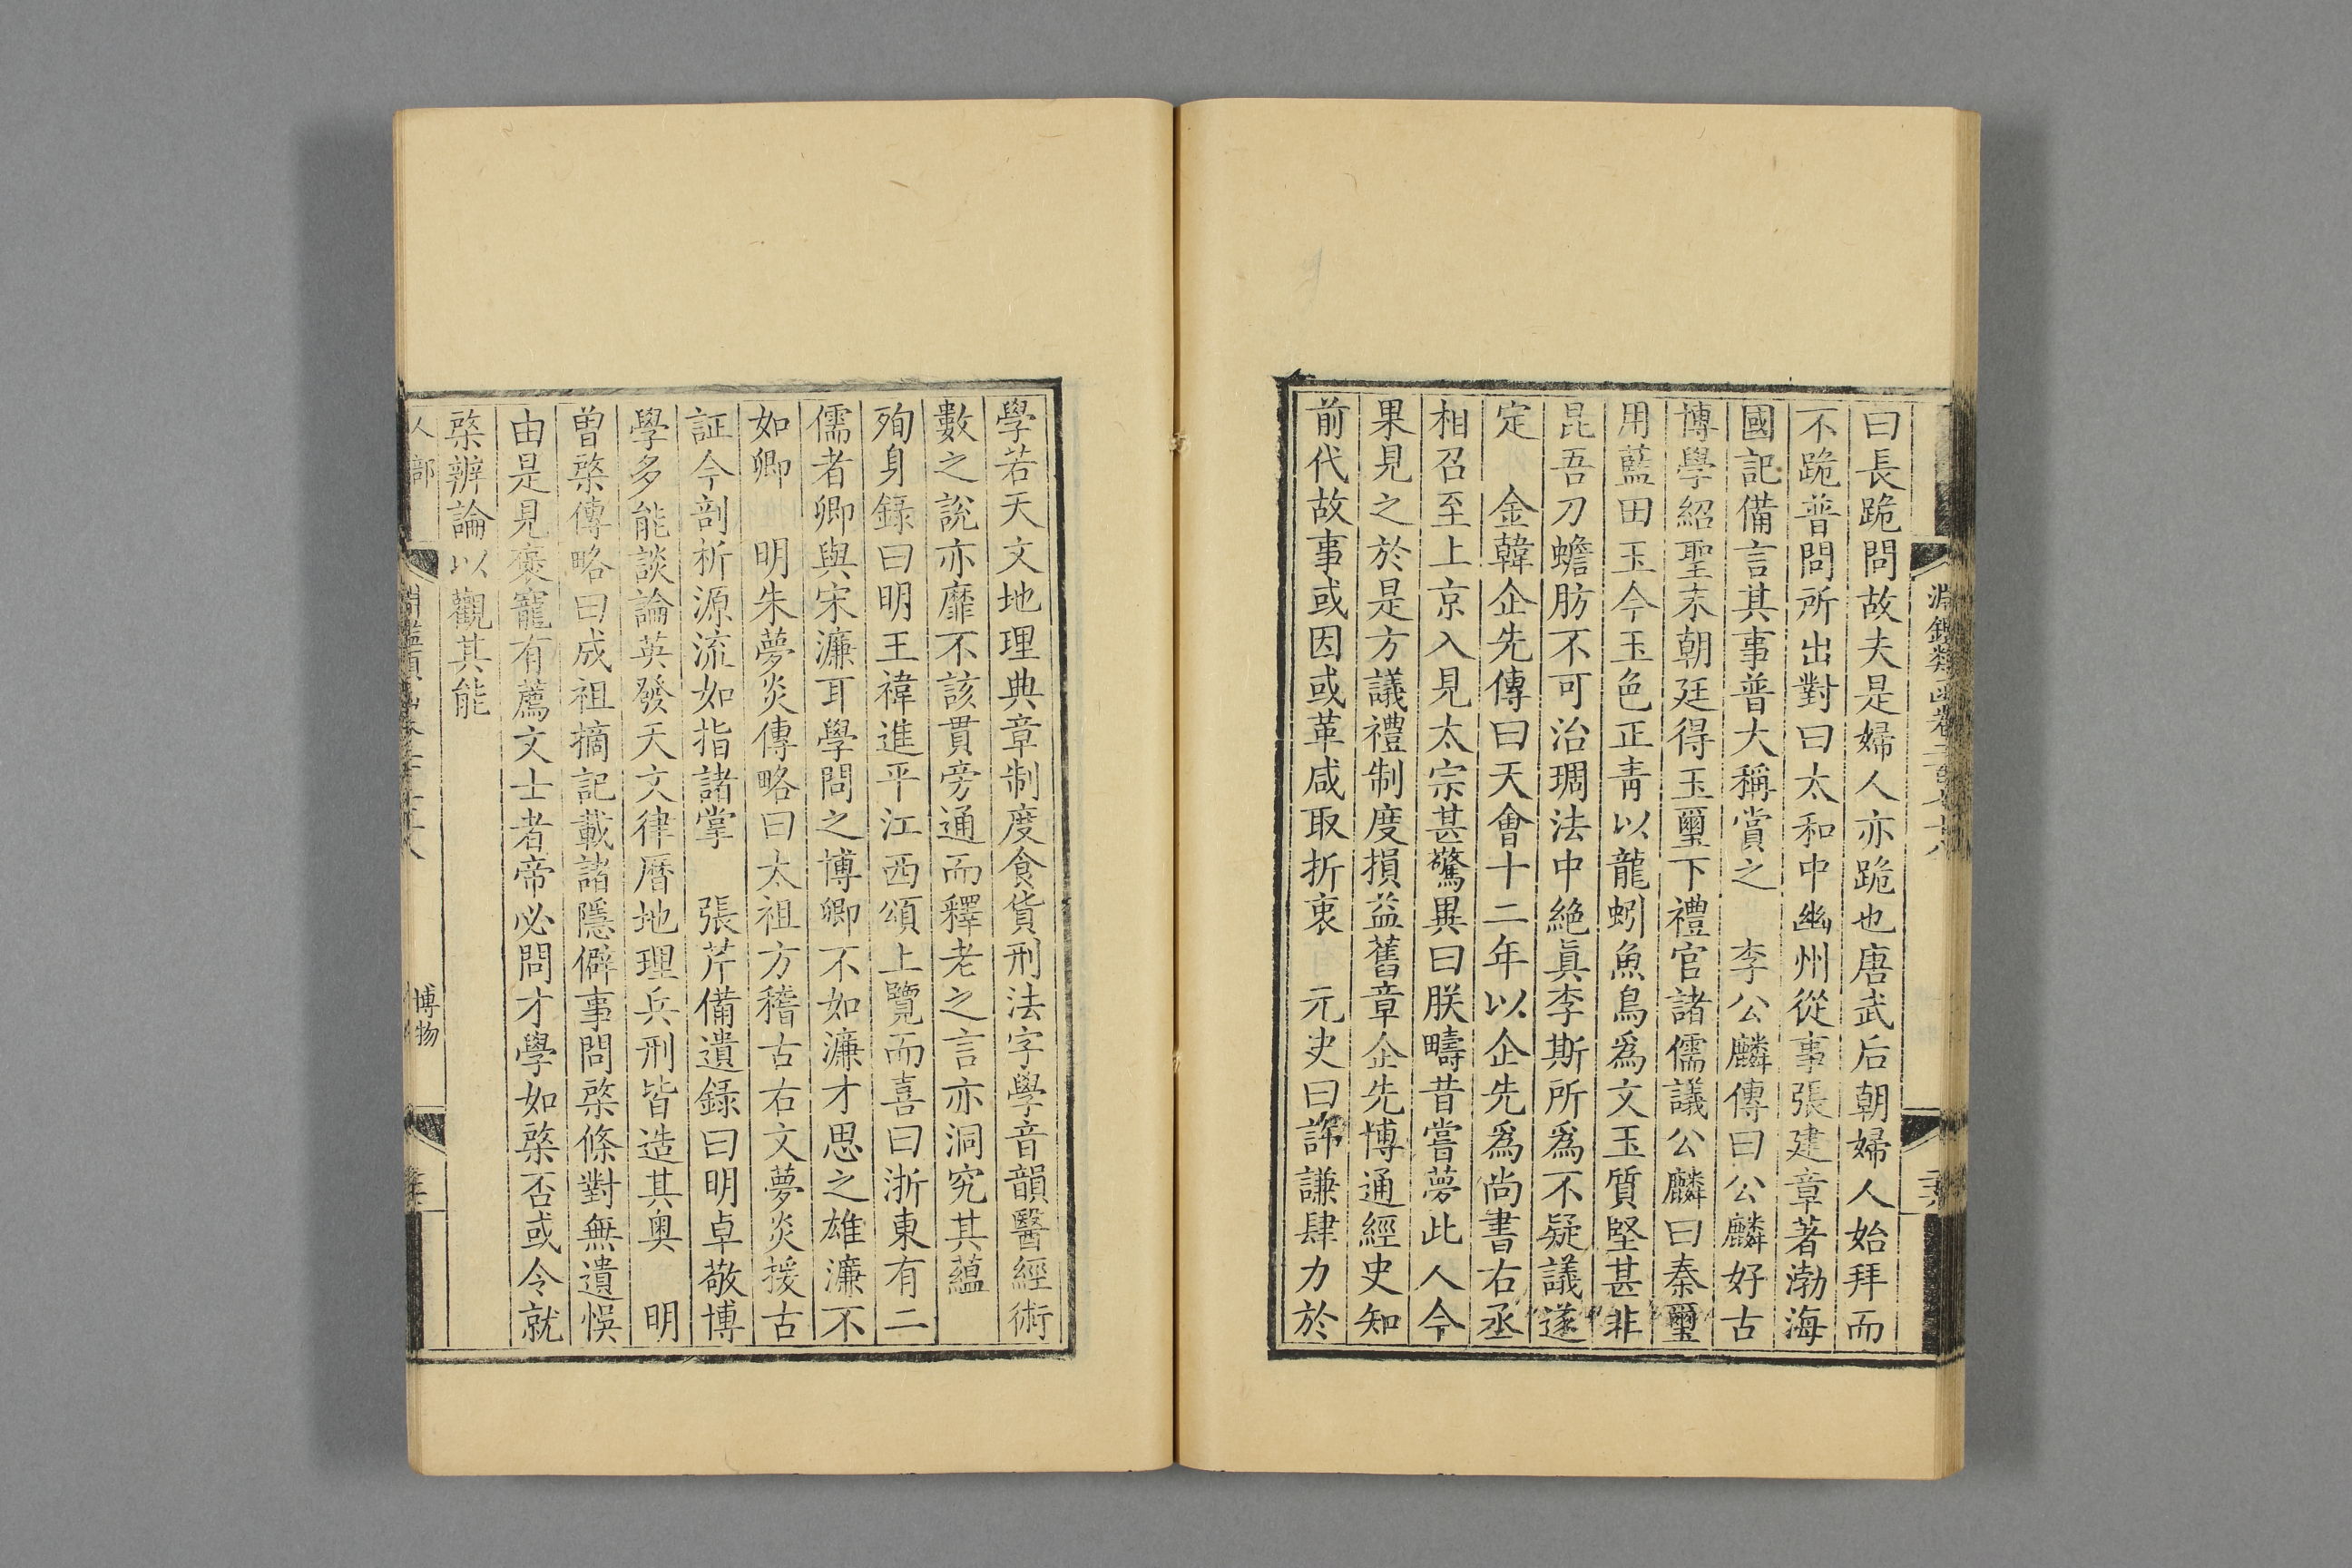 淵鑑類函卷二百七十八
曰長跪問故夫是婦人亦跪也唐武后朝婦人始拜而
不跪普問所出對曰太和中幽州從事張建章著渤海
國記備言其事普大稱賞之　李公麟傳曰公麟好古
博學紹聖末朝廷得玉璽下禮官諸儒議公麟曰秦璽
用藍田玉今玉色正青以龍蚓魚鳥爲文玉質堅甚非
昆吾刀蟾肪不可治琱法中絶眞李斯所爲不疑議遂
定　金韓企先傳曰天會十二年以企先爲尚書右丞
相召至上京入見太宗甚驚異曰朕疇昔嘗夢此人今
果見之於是方議禮制度損益舊章企先博通經史知
前代故事或因或革咸取折衷　元史曰許謙肆力於
學若天文地理典章制度食貨刑法字學音韻醫經術
數之說亦靡不該貫旁通而釋老之言亦洞究其蘊
殉身錄曰明王禕進平江西頌上覽而喜曰浙東有二
儒者卿與宋濂耳學問之博卿不如濂才思之雄濂不
如卿　明朱夢炎傳略曰太祖方稽古右文夢炎援古
証今剖析源流如指諸掌　張芹備遺錄曰明卓敬博
學多能談論英發天文律曆地理兵刑皆造其奥　明
曾棨傳略曰成祖摘記載諸隱僻事問棨條對無遺悞
由是見褒寵有薦文士者帝必問才學如棨否或令就
棨辨論以觀其能
人部
博物